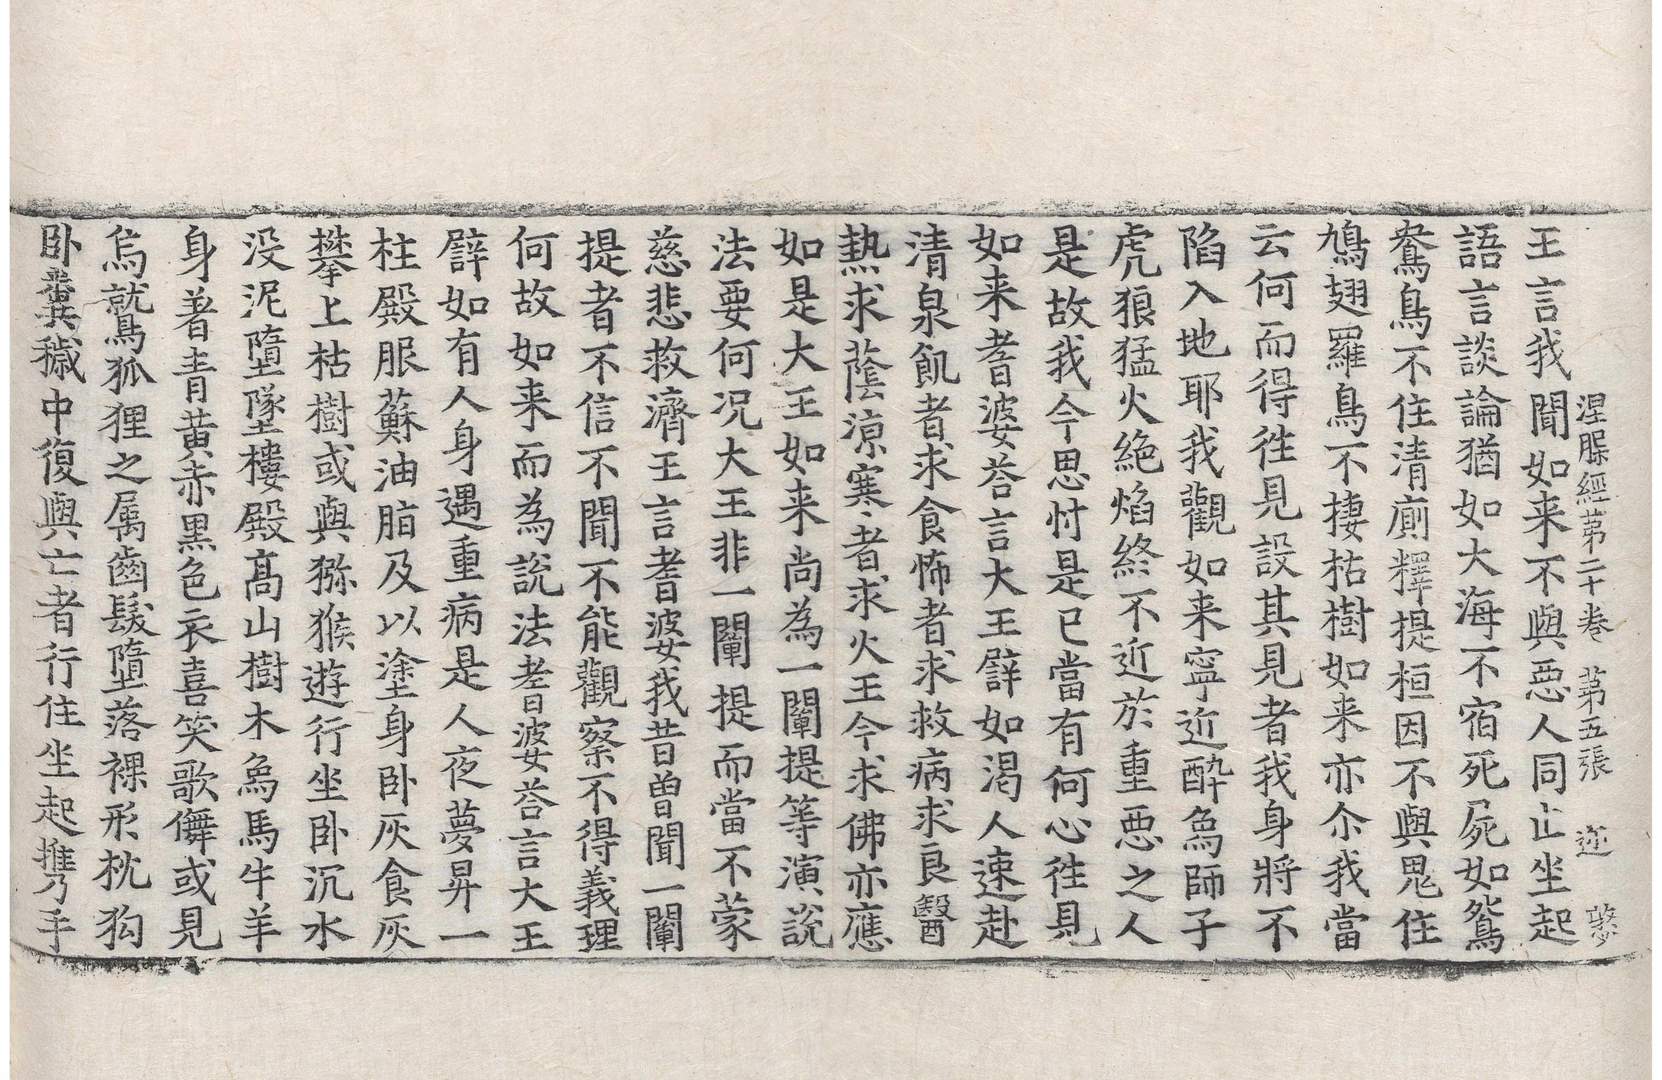 涅槃經第二十卷　第五張　迩
王言我聞如来不與惡人同止坐起
語言談論猶如大海不宿死屍如鴛
鴦鳥不住清廁釋提桓因不與鬼住
鳩翅羅鳥不棲枯樹如来亦尒我當
云何而得徃見設其見者我身將不
陷入地耶我觀如来寧近醉烏師子
虎狼猛火絶焰終不近於重惡之人
是故我今思忖是已當有何心徃見
如来耆婆荅言大王譬如渴人速赴
清泉飢者求食怖者求救病求良醫
熱求蔭涼寒者求火王今求佛亦應
如是大王如来尚為一闡提等演說
法要何况大王非一闡提而當不蒙
慈悲救濟王言耆婆我昔曽聞一闡
提者不信不聞不能觀察不得義理
何故如来而為說法耆婆荅言大王
譬如有人身遇重病是人夜夢昇一
柱殿服蘇油脂及以塗身卧灰食灰
攀上枯樹或與猕猴遊行坐卧沉水
没泥墮墜樓殿髙山樹木烏馬牛羊
身著青黄赤黒色衣喜笑歌儛或見
烏鷲狐狸之属齒髮墮落裸形枕狗
卧糞穢中復與亡者行住坐起携手